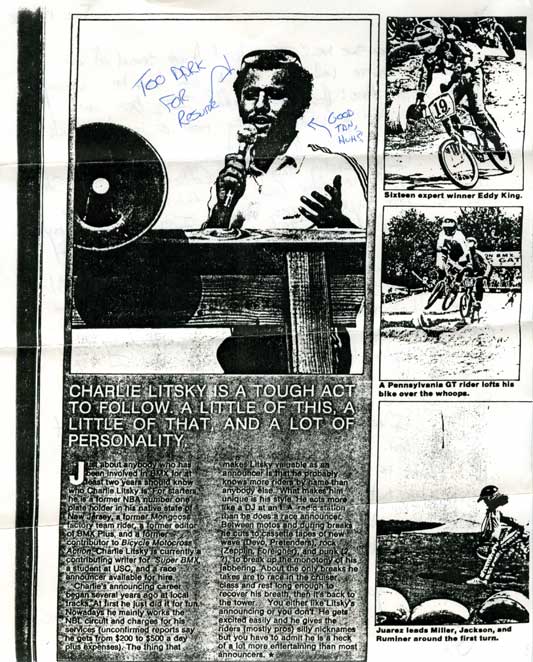 TOO DARK
FOR
RESUME
GOOD
TAN,
HUH?
19
Sixteen expert winner Eddy King.
A Pennsylvania GT rider lofts his
bike over the whoops.
CHARLIE LITSKY IS A TOUGH ACT
TO FOLLOW. A LITTLE OF THIS, A
LITTLE OF THAT, AND A LOT OF
PERSONALITY.
Just about anybody who has
been involved in BMX for at
least two years should know
who Charlie Litsky is. For starters,
he is a former NBA number one
plate holder in his native state of
New Jersey, a former Mongoose
factory team rider, a former editor
of BMX Plus, and a former
contributor to Bicycle Motocross
Action. Charlie Litsky is currently a
contributing writer for Super BMX,
a student at USC, and a race
announcer available for hire.
Charlie's announcing career
began several years ago at local
tracks. At first he just did it for fun.
Nowadays he mainly works the
NBL circuit and charges for his
services (unconfirmed reports say
he gets from $200 to $500 a day
plus expenses). The thing that
makes Litsky valuable as an
announcer is that he probably
knows more riders by name than
anybody else. What makes him
unique is his style. He acts more
like a DJ at an L.A. radio station
than he does a race announcer.
Between motos and during breaks
he cuts to cassette tapes of new
wave (Devo, Pretenders), rock
(Zepplin, Foreigner), and punk
to break up the monotony of his
jabbering. About the only breaks he
takes are to race in the cruiser
class and rest long enough to
recover his breath, then it's back to
the tower. You either like Litsky's
announcing or you don't. He gets
excited easily and he gives the
riders (mostly pros) silly nicknames
but you have to admit he is a heck
of a lot more entertaining than most
announcers. ★
Juarez leads Miller, Jackson, and
Ruminer around the first turn.